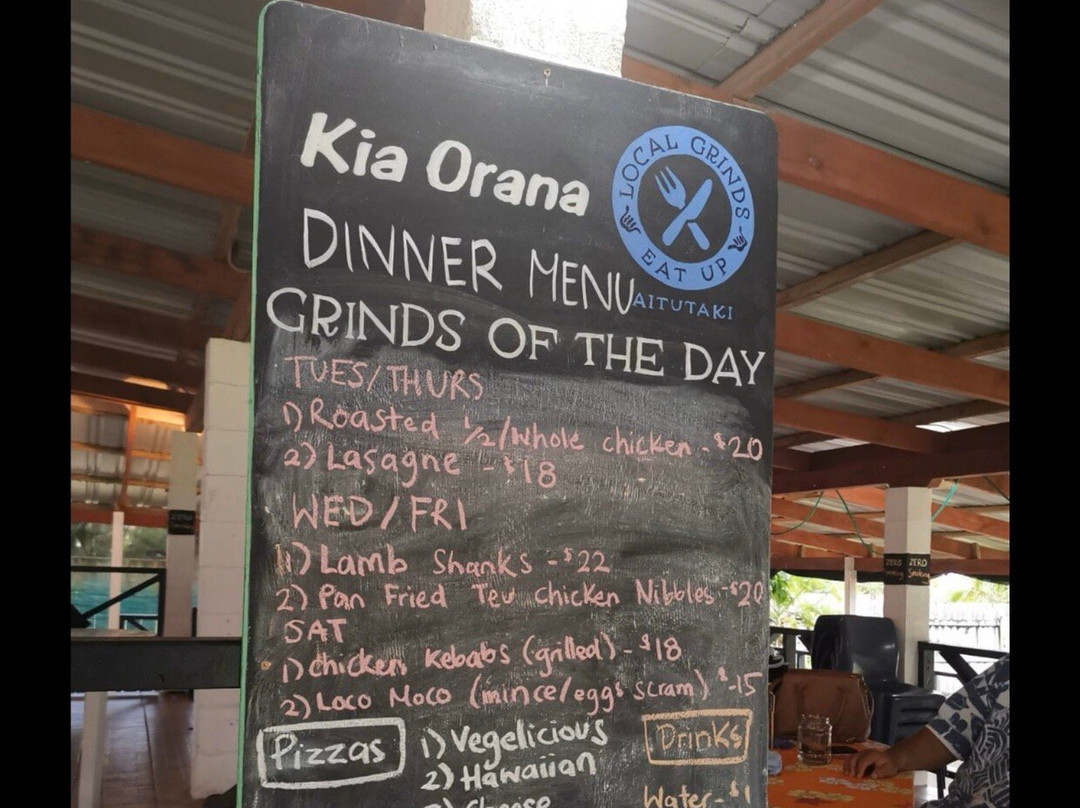 Kia Orana
LOCAL GRINDS
EAT UP
AITUTAKI
DINNER MENU
GRINDS OF THE DAY
TUES/THURS
1) Roasted 1/2/Whole chicken - $20
2) Lasagne - $18
WED/FRI
1) Lamb Shanks - $22
2) Pan Fried Teu chicken Nibbles - $20
SAT
1) chicken kebabs (grilled) - $18
2) Loco Moco (mince/eggs scram) $-15
Pizzas
1) Vegelicious
2) Hawaiian
Cheese
Drinks
Water - $1
ZERO
ZERO
Smoking